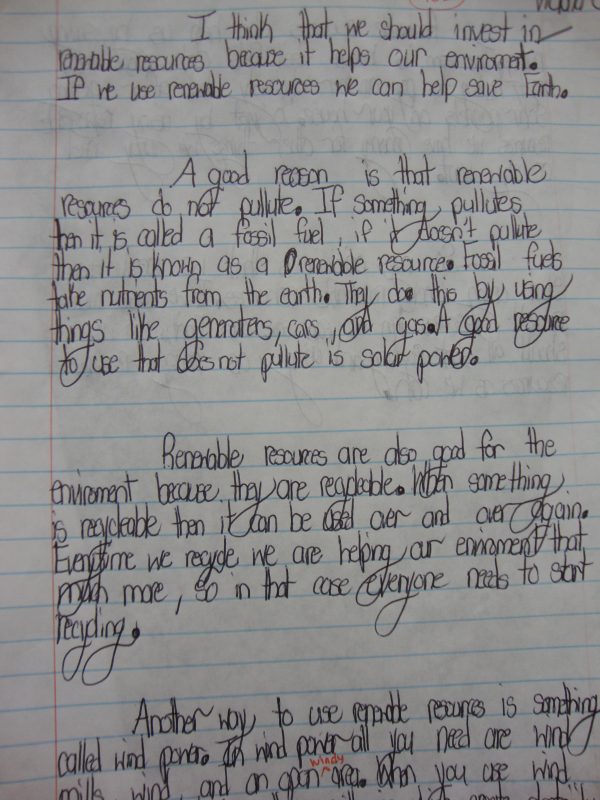 I think that we should invest in
renewable resources because it helps our enviroment.
If we use renewable resources we can help save Earth.
A good reason is that renewable
resources do not pullute. If something pullutes
then it is called a fossil fuel, if it doesn't pullute
then it is known as a renewable resource. Fossil fuels
take nutrients from the earth. They do this by using
things like generaters, cars, and gas. A good resource
to use that does not pollute is solar power.
Renewable resources are also good for the
enviroment because they are recycleable. When something
is recycleable then it can be used over and over again.
Everytime we recycle we are helping our enviroment that
much more, so in that case everyone needs to start
recycling.
Another way to use renewable resources is something
called wind power. In wind power all you need are wind
windy
mills wind, and an open area. When you use wind